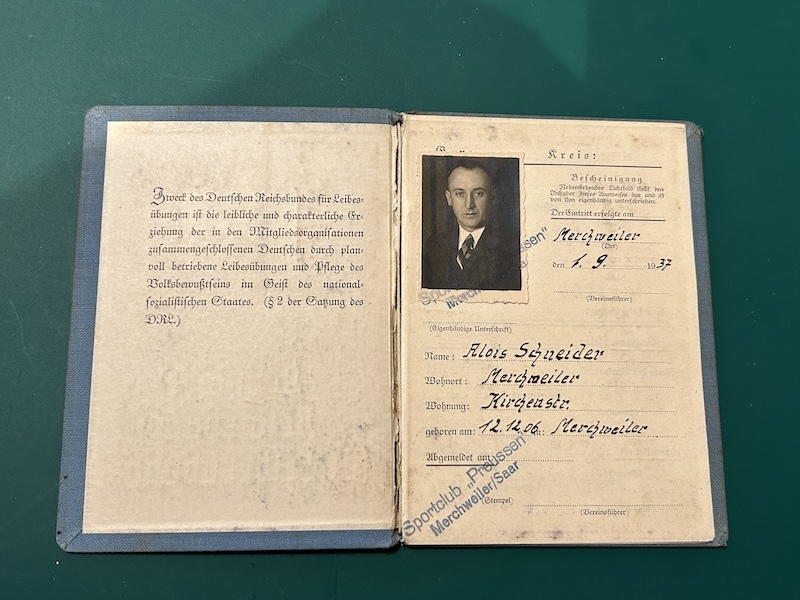 Zweck des Deutschen Reichsbundes für Leibes-
übungen ist die leibliche und charakterliche Er-
ziehung der in den Mitgliedsorganisationen
zusammengeschlossenen Deutschen durch plan-
voll betriebene Leibesübungen und Pflege des
Volksbewußtseins im Geist des national-
sozialistischen Staates. (§ 2 der Satzung des
DRL.)
Kreis:
Bescheinigung
Nebenstehendes Lichtbild stellt den
Inhaber dieses Ausweises dar und ist
von ihm eigenhändig unterschrieben.
Der Eintritt erfolgte am
Merchweiler
(Ort)
den 1. 9. 1937
(Vereinsführer)
(Eigenhändige Unterschrift)
Name: Alois Schneider
Wohnort: Merchweiler
Wohnung: Kirchenstr.
geboren am: 12.12.06 in: Merchweiler
Abgemeldet am
Sportclub „Preussen"
Merchweiler/Saar
(Stempel)
(Vereinsführer)